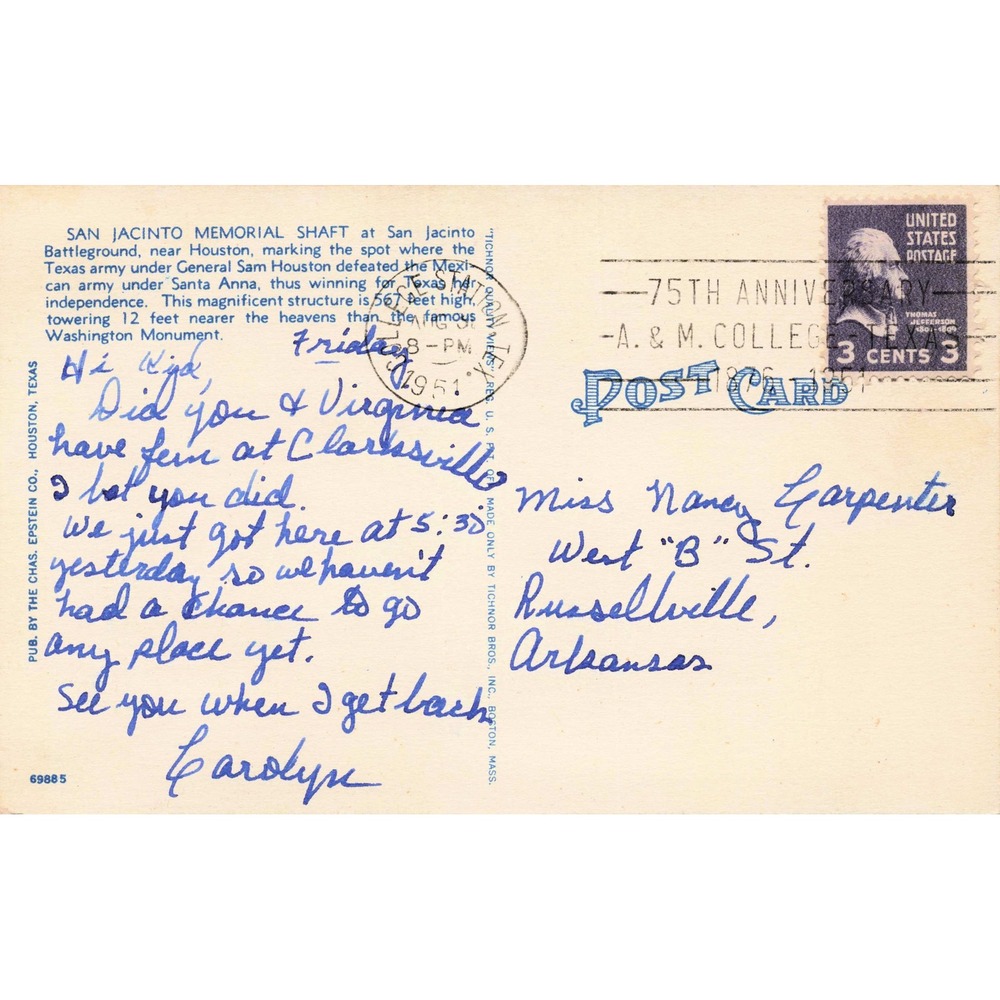 SAN JACINTO MEMORIAL SHAFT at San Jacinto
Battleground, near Houston, marking the spot where the
Texas army under General Sam Houston defeated the Mexi-
can army under Santa Anna, thus winning for Texas her
independence. This magnificent structure is 567 feet high,
towering 12 feet nearer the heavens than the famous
Washington Monument.
Friday
Hi Kid,
Did you & Virginia
have fun at Clarksville
I bet you did.
We just got here at 5:30
yesterday so we haven't
had a chance to go
any place yet.
See you when I get back
Carolyn
69885
PUB. BY THE CHAS. EPSTEIN CO., HOUSTON, TEXAS
"TICHNOR QUALITY VIEWS," REG. U. S. PAT. OFF. MADE ONLY BY TICHNOR BROS., INC., BOSTON, MASS.
COLLEGE STATION TEX.
AUG 31
8-PM
1951
75TH ANNIVERSARY
A. & M. COLLEGE TEXAS
1876-1951
UNITED
STATES
POSTAGE
THOMAS
JEFFERSON
1801-1809
3 CENTS 3
POST CARD
Miss Nancy Carpenter
West "B" St.
Russellville,
Arkansas